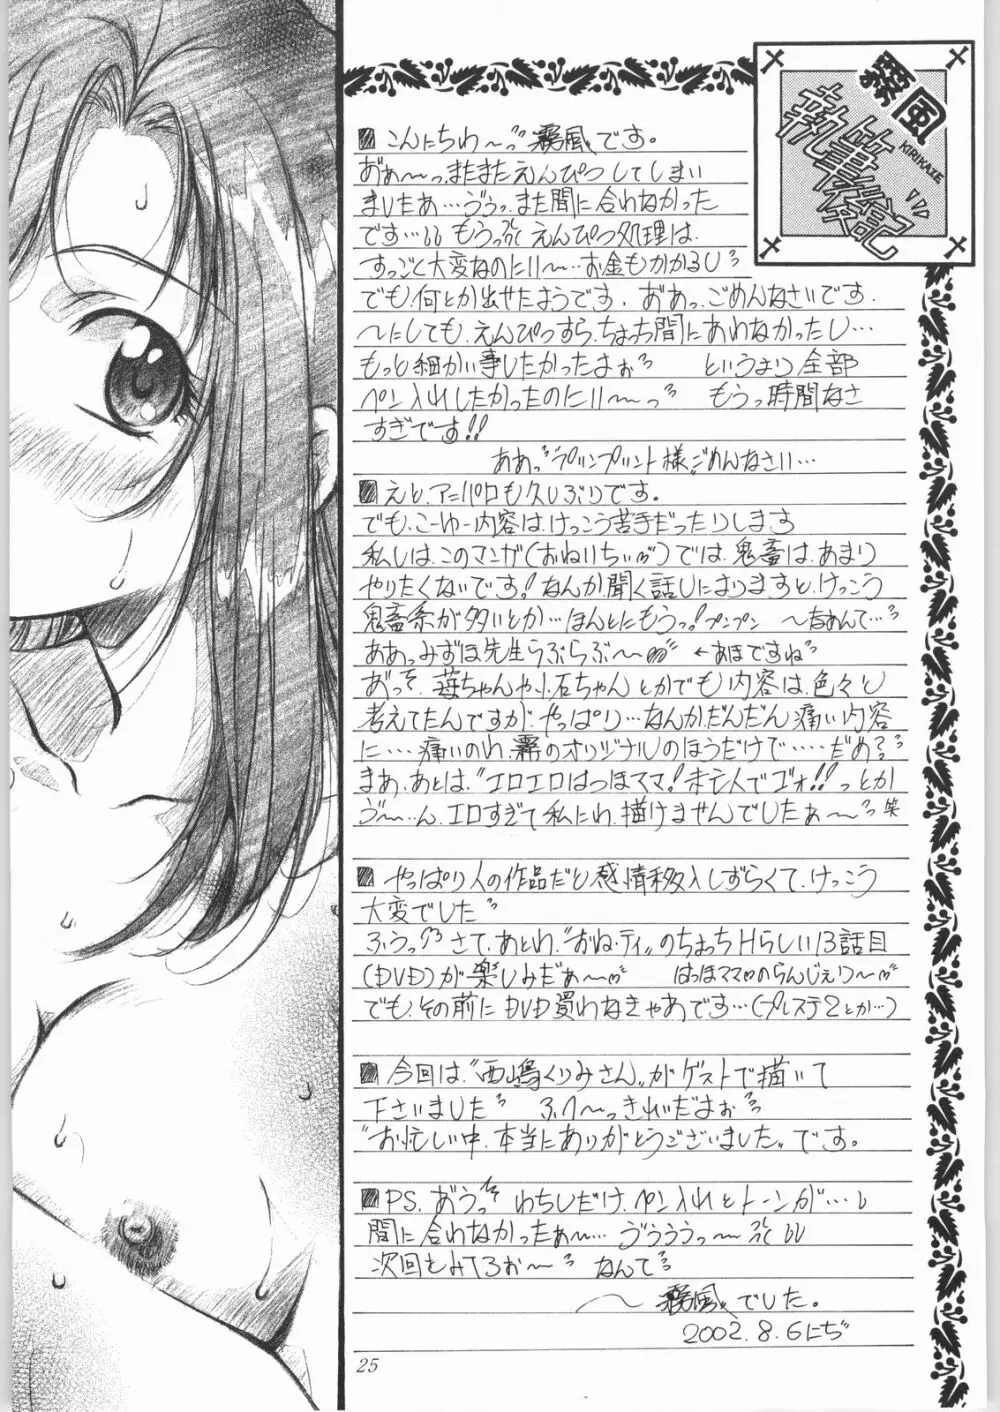 霧風
KIRIKAZE
執筆後記
■こんにちわ〜っ゛霧風です。
おぁ〜っ、またまたえんぴつしてしまい
ましたぁ…ゔぅっ、また間に合わなかった
です… もうっ えんぴつ処理は、
すっごく大変なのにıı〜…お金もかかるし
でも、何とか出せたようです、おぁっ、ごめんなさいです、
〜にしても、えんぴつすら、ちょっち間にあわなかったし…
もっと細かい事したかったよぉ゛ というより全部
ペン入れしたかったのにıı〜っ゛ もうっ時間なさ
すぎです!!
ああっ゛プリンプリント様、ごめんなさい…
■えと、アニパロも久しぶりです。
でも、こーゆー内容は、けっこう苦手だったりします
私しは、このマンガ(おねıちぃ)では、鬼畜は、あまり
やりたくないです!なんか、聞く話しによりますと、けっこう
鬼畜系が多いとか…ほんとにもうっ!プンプン
ああっみずほ先生らぶらぶ〜 ←あほですね゛
おっそ、苺ちゃんや、小石ちゃんとかでも内容は、色々と
考えてたんですが、やっぱり…なんか、だんだん痛い内容
に…痛いのわ、霧のオリジナルのほうだけで……だめ?゛
まぁ、あとは、“エロエロはっほママ!未亡人でゴォ!!っとか
ゔ〜…ん、エロすぎて私にわ、描けませんでしたぁ〜゛笑
■やっぱり人の作品だと感情移入しずらくて、けっこう
大変でした゛
ふうっ さて、あとわ、“おね・ティ〃のちょっちHらしい13話目
(DVD)が楽しみだぁ〜 はっほママ のらんじぇりー〜
でも、その前にDVD買わなきゃあです…(プレステ2とか…)
■今回は、“西嶋くりみさん〃がゲストで描いて
下さいました゛ ふわ〜っきれいだよぉ゛
“お忙しい中、本当にありがとうございました〃です。
■PS、おうっ わちしだけ、ペン入れとトーンが…し
間に合わなかったぁ〜… ゔぅぅぅっ〜
次回をみてろぉ〜゛ なんて゛
〜霧風〃でした。
2002.8.6にぢ
25